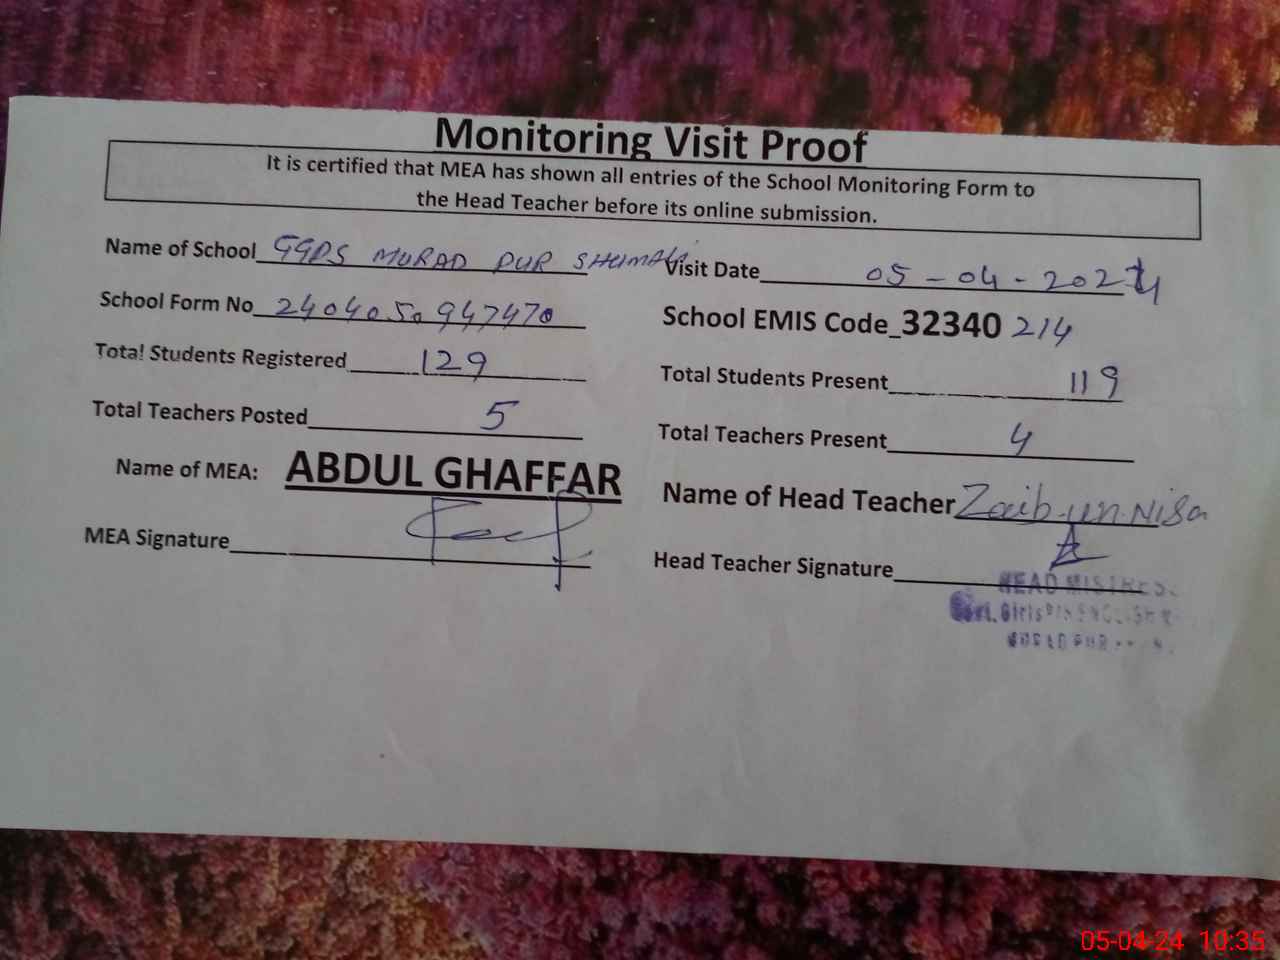 Monitoring Visit Proof
It is certified that MEA has shown all entries of the School Monitoring Form to
the Head Teacher before its online submission.
Name of School GGPS MURAD PUR SHUMALI Visit Date 05-04-2024
School Form No 2404050947470 School EMIS Code_32340 214
Total Students Registered 129 Total Students Present 119
Total Teachers Posted 5 Total Teachers Present 4
Name of MEA: ABDUL GHAFFAR Name of Head Teacher Zaib-un-Nisa
MEA Signature Head Teacher Signature
HEAD MISTRES
Girls
05-04-24 10:35